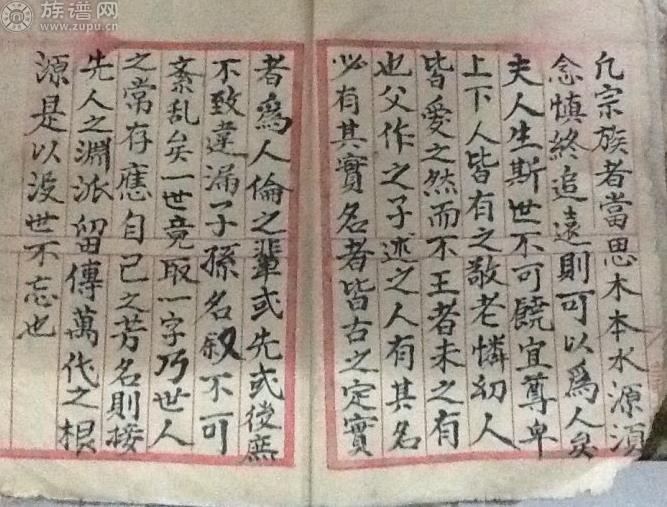 族谱网
www.zupu.cn
凢宗族者當思木本水源湏
念慎終追遠則可以爲人矣
夫人生斯世不可饒宜尊卑
上下人皆有之敬老憐幼人
皆愛之然而不王者未之有
也父作之子述之人有其名
必有其實名者皆古之定實
者爲人倫之輩或先或後庶
不致違漏子孫名叙不可
紊乱矣一世竟取一字乃世人
之常存應自己之芳名則接
先人之淵派留傳萬代之根
源是以没世不忘也